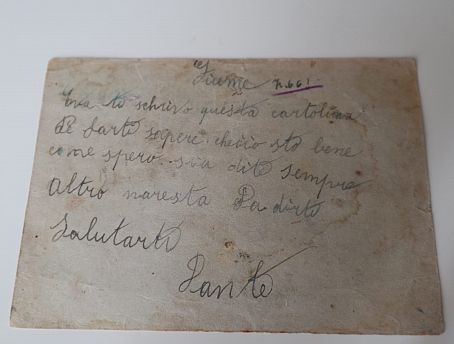 Fiume
Eva ti schrivo questa cartolina
farti sapere cheiio sto bene
come spero sia di te sempre
altro naresta Da dirti
Salutarti
Dante